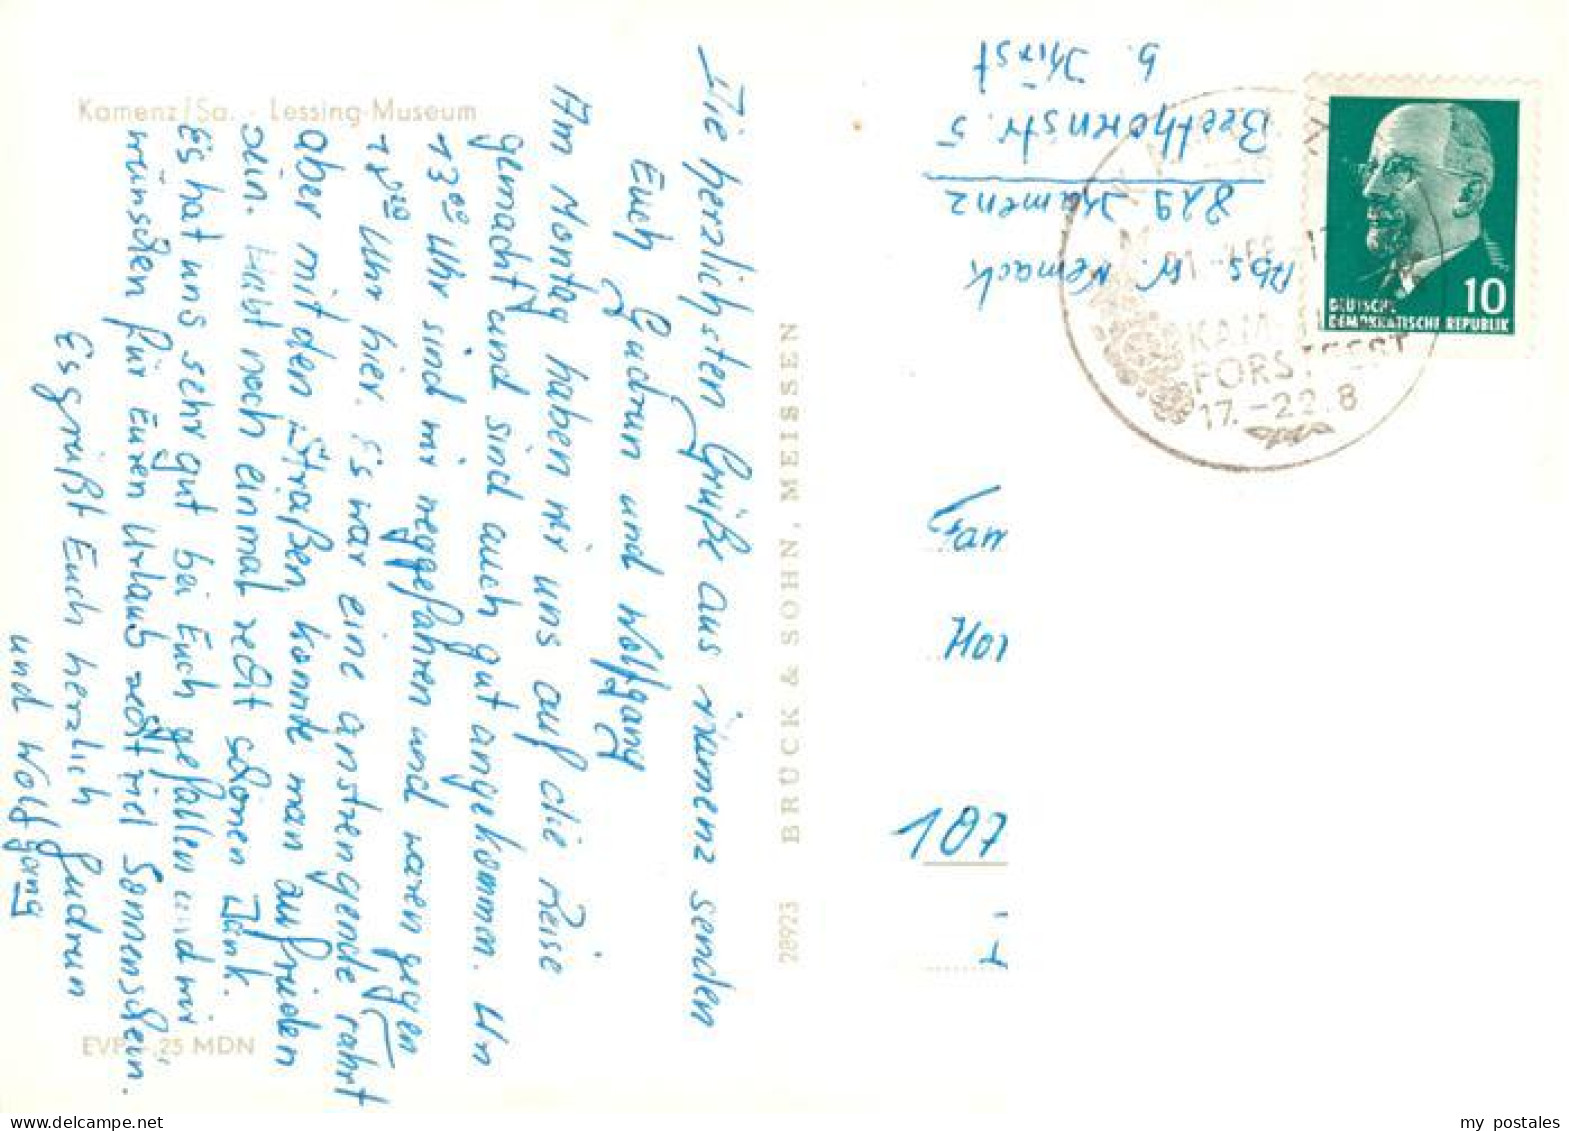 Kamenz/Sa. - Lessing-Museum
Die herzlichsten Grüße aus Kamenz senden
Euch Gudrun und Wolfgang
Am Montag haben wir uns auf die Reise
gemacht und sind auch gut angekommen. Un
13 00 Uhr sind wir weggefahren und waren gegen
Uhr hier. Es war eine anstrengende Fahrt
aber mit den Straßen konnte man zufrieden
sein. Habt noch einmal recht schönen Dank.
Es hat uns sehr gut bei Euch gefallen und wir
wünschen für Euren Urlaub recht viel Sonnenschein.
Es grüßt Euch herzlich Gudrun
und Wolfgang
EVP -,25 MDN
28923 BRÜCK & SOHN, MEISSEN
Abs. W. Nemack
829 Kamenz
Beethovenstr. 5
b. Kirst
KAMENZ
FORSTFEST
17.-22.8
DEUTSCHE
DEMOKRATISCHE REPUBLIK
10
Fam
Hor
107
my postales